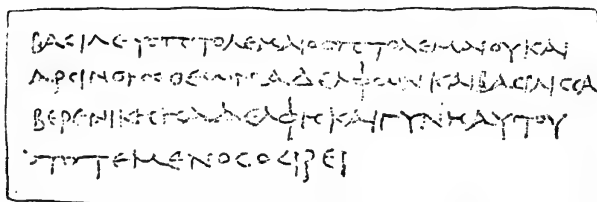 ΒΑϹΙΛΕΥϹΠΤΟΛΕΜΑΙΟϹΠΤΟΛΕΜΑΙΟΥΚΑΙ
ΑΡϹΙΝΟΗϹΘΕΩΝΑΔΕΛΦΩΝΚΑΙΒΑϹΙΛΙϹϹΑ
ΒΕΡΕΝΙΚΗΗΑΔΕΛΦΗΚΑΙΓΥΝΗΑΥΤΟΥ
ΤΟΤΕΜΕΝΟϹΟϹΙΡΕΙ